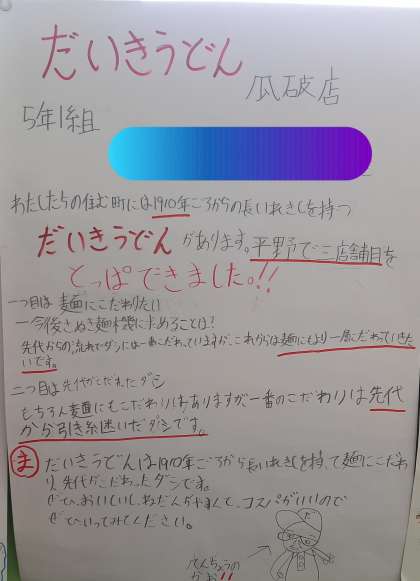 だいきうどん
瓜破店
5年1組
わたしたちの住む町には1910年ごろからの長いれきしを持つ
だいきうどんがあります。平野で三店舗目を
とっぱできました。!!
一つ目は麺にこだわりたい
一今後さぬき麺機に求めることは?
先代からの流れでダシには一番こだわっていますが、これからは麺にもより一層こだわっていきた
いです。
二つ目は先代がこだわったダシ
もちろん麺にもこだわりはありますが、一番のこだわりは先代
から引き継いだダシです。
ま だいきうどんは1910年ごろから長いれきしを持って麺にこだわ
り、先代がこだわったダシです。
ぜひ、おいしいし、ねだんがやすくて、コスパがいいので
ぜひいってみてください。
てんちょうの
かお!!